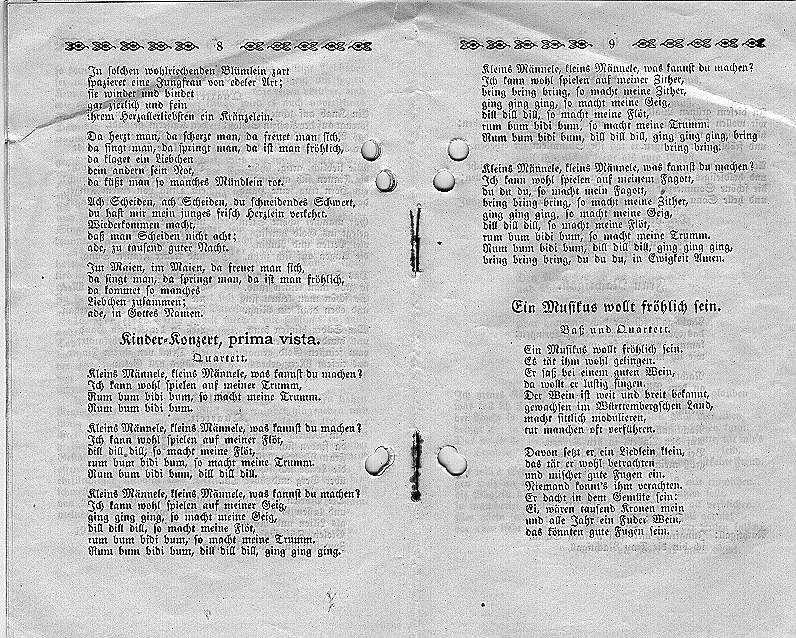 8
In solchen wohlriechenden Blümlein zart
spazieret eine Jungfrau von edeler Art;
sie windet und bindet
gar zierlich und fein
ihrem Herzallerliebsten ein Kränzelein.
Da herzt man, da scherzt man, da freuet man sich,
da singt man, da springt man, da ist man fröhlich,
da klaget ein Liebchen
dem andern sein Not,
da küßt man so manches Mündlein rot.
Ach Scheiden, ach Scheiden, du schneidendes Schwert,
du hast mir mein junges frisch Herzlein verkehrt.
Wiederkommen macht,
daß man Scheiden nicht acht;
ade, zu tausend guter Nacht.
Im Maien, im Maien, da freuet man sich,
da singt man, da springt man, da ist man fröhlich,
da kommet so manches
Liebchen zusammen;
ade, in Gottes Namen.
Kinder-Konzert, prima vista.
Quartett.
Kleins Männele, kleins Männele, was kannst du machen?
Ich kann wohl spielen auf meiner Trumm,
Rum bum bidi bum, so macht meine Trumm.
Rum bum bidi bum.
Kleins Männele, kleins Männele, was kannst du machen?
Ich kann wohl spielen auf meiner Flöt,
dill dill dill, so macht meine Flöt,
rum bum bidi bum, so macht meine Trumm.
Rum bum bidi bum, dill dill dill.
Kleins Männele, kleins Männele, was kannst du machen?
Ich kann wohl spielen auf meiner Geig,
ging ging ging, so macht meine Geig,
dill dill dill, so macht meine Flöt,
rum bum bidi bum, so macht meine Trumm.
Rum bum bidi bum, dill dill dill, ging ging ging.
9
Kleins Männele, kleins Männele, was kannst du machen?
Ich kann wohl spielen auf meiner Zither,
bring bring bring, so macht meine Zither,
ging ging ging, so macht meine Geig,
dill dill dill, so macht meine Flöt,
rum bum bidi bum, so macht meine Trumm.
Rum bum bidi bum, dill dill dill, ging ging ging, bring
bring bring.
Kleins Männele, kleins Männele, was kannst du machen?
Ich kann wohl spielen auf meinem Fagott,
du du du, so macht mein Fagott,
bring bring bring, so macht meine Zither,
ging ging ging, so macht meine Geig,
dill dill dill, so macht meine Flöt,
rum bum bidi bum, so macht meine Trumm.
Rum bum bidi bum, dill dill dill, ging ging ging,
bring bring bring, du du du, in Ewigkeit Amen.
Ein Musikus wollt fröhlich sein.
Baß und Quartett.
Ein Musikus wollt fröhlich sein.
Es tät ihm wohl gelingen.
Er saß bei einem guten Wein,
da wollt er lustig singen.
Der Wein ist weit und breit bekannt,
gewachsen im Württembergschen Land,
macht sittlich modulieren,
tut manchen oft verführen.
Davon setzt er ein Liedlein klein,
das tät er wohl betrachten
und mischet gute Fugen ein.
Niemand konnt's ihm verachten.
Er dacht in dem Gemüte sein:
Ei, wären tausend Kronen mein
und alle Jahr ein Fuder Wein,
das könnten gute Fugen sein.